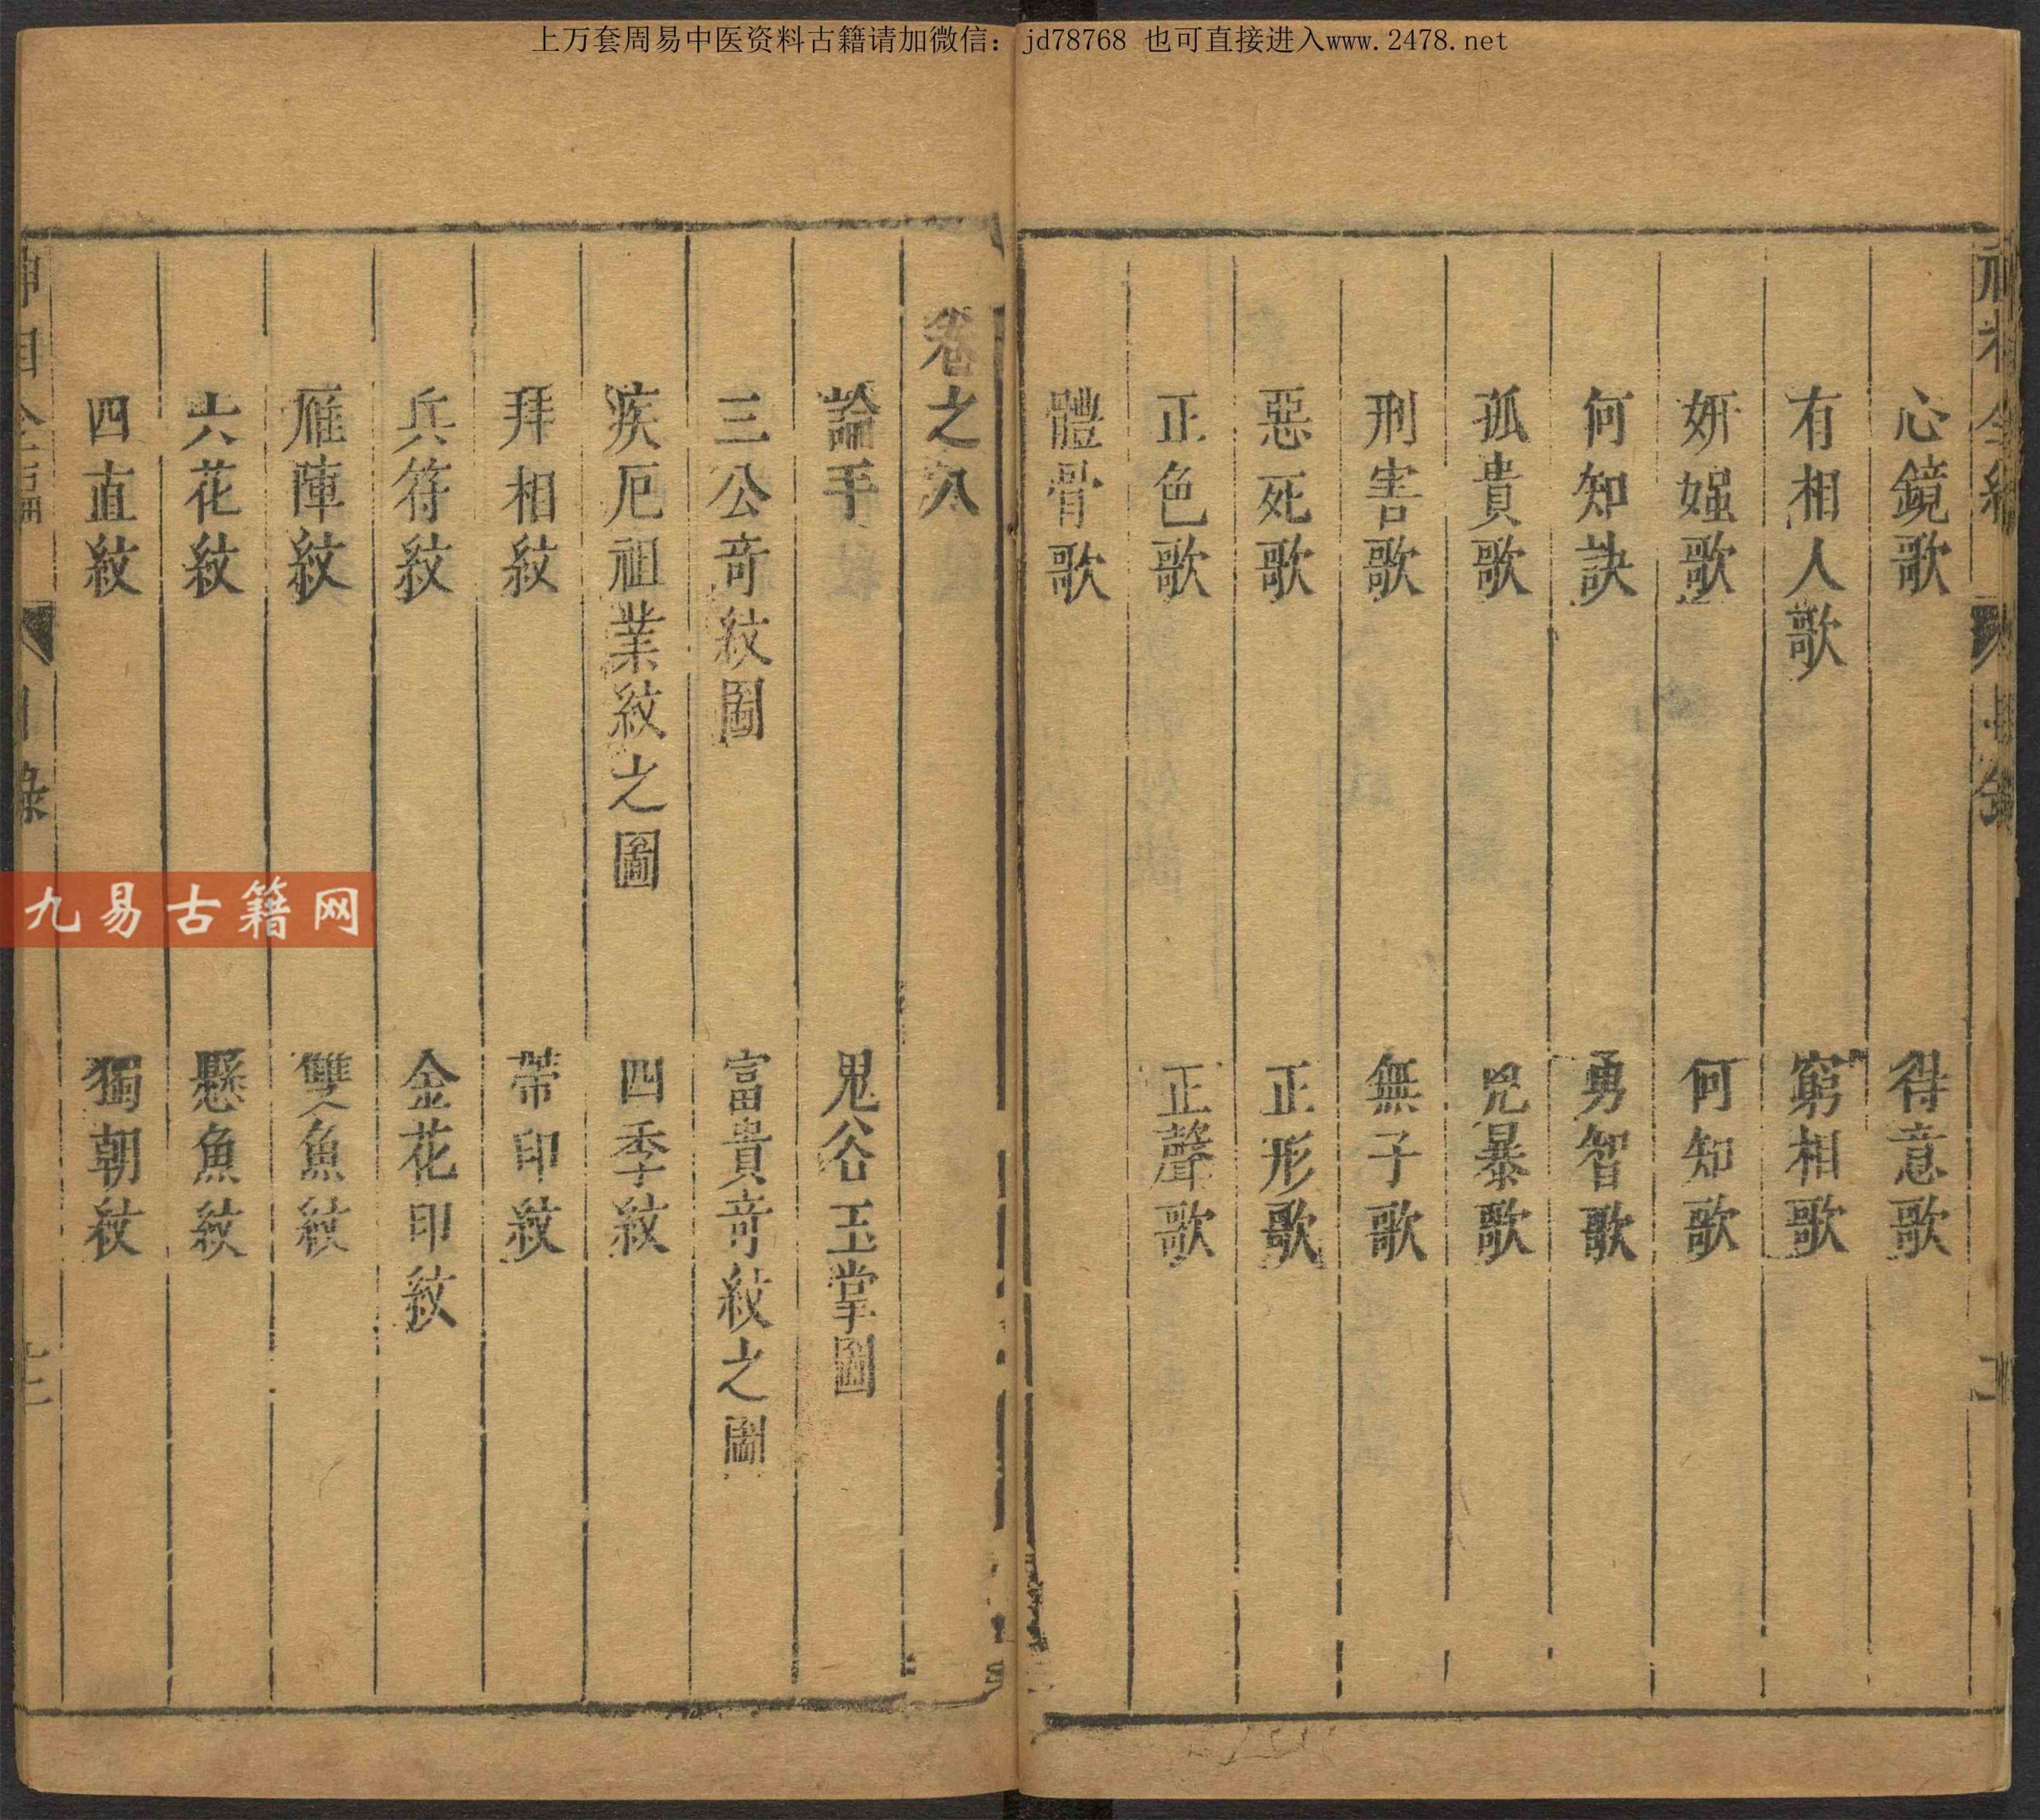 上万套周易中医资料古籍请加微信：jd78768 也可直接进入www.2478.net
心鏡歌 得意歌
有相人歌 窮相歌
妍媸歌 何知歌
何知訣 勇智歌
孤貴歌 兇暴歌
刑害歌 無子歌
惡死歌 正形歌
正色歌 正聲歌
體骨歌
卷之八
論手 鬼谷玉掌圖
三公奇紋圖 富貴奇紋之圖
疾厄祖業紋之圖 四季紋
拜相紋 帶印紋
兵符紋 金花印紋
雁陣紋 雙魚紋
六花紋 懸魚紋
四直紋 獨朝紋
九易古籍网